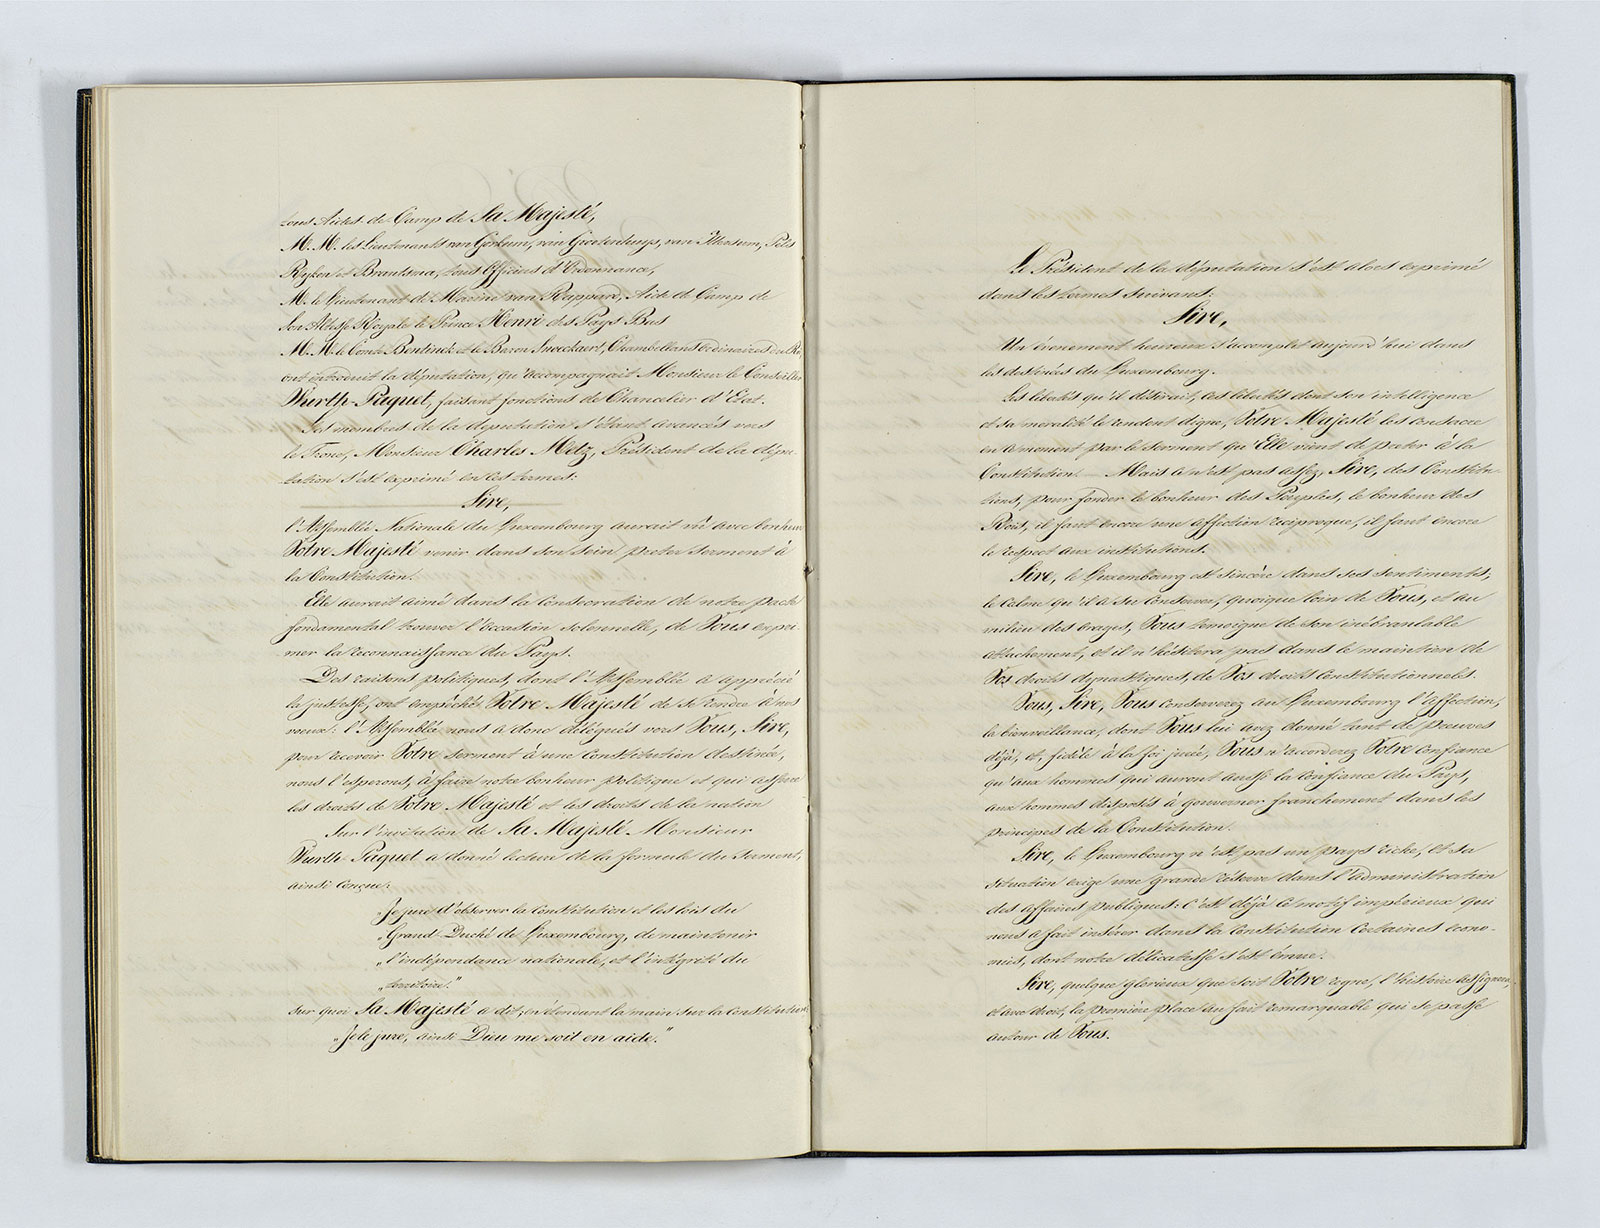 tous Aides de Camp de Sa Majesté,
M. M. les Lieutenants van Gorkum, van Grotenhuys, van Ittersum, Pels
Ryken et Brantsma, tous Officiers d'Ordonnance,
M. le Lieutenant de Marine van Rappard, Aide de Camp de
Son Altesse Royale le Prince Henri des Pays Bas
M. M. le Comte Bentinck et le Baron Snoeckaert, Chambellans ordinaires du Roi,
ont introduit la députation, qu'accompagnait Monsieur le Conseiller
Wurth-Paquet, faisant fonctions de Chancelier d'État.
Les membres de la députation s'étant avancés vers
le Trône, Monsieur Charles Metz, Président de la dépu-
tation s'est exprimé en ces termes:
Sire,
l'Assemblée Nationale du Luxembourg aurait vû avec bonheur
Votre Majesté venir dans son sein preter serment à
la Constitution.
Elle aurait aimé dans la consécration de notre pacte
fondamental trouver l'occasion solennelle, de Vous expri-
mer la reconnaissance du Pays.
Des raisons politiques, dont l'Assemblée a apprécié
la justesse, ont empêché Votre Majesté de se rendre à nos
voeux: l'Assemblée nous a donc délégués vers Vous, Sire,
pour recevoir Votre serment à une Constitution destinée,
nous l'espérons, à faire notre bonheur politique et qui assure
les droits de Votre Majesté et les droits de la nation
Sur l'invitation de Sa Majesté Monsieur
Wurth-Paquet a donné lecture de la formule du serment,
ainsi conçue:
„Je jure d'observer la Constitution et les lois du
„Grand-Duché de Luxembourg, de maintenir
„l'indépendance nationale, et l'intégrité du
„territoire."
sur quoi Sa Majesté a dit, en étendant la main sur la Constitution
„Je le jure, ainsi Dieu me soit en aide."
Le Président de la députation s'est alors exprimé
dans les termes suivans:
Sire,
Un évenement heureux s'accomplit aujourd'hui dans
les destinées du Luxembourg.
Les libertés qu'il désirait, ces libertés dont son intelligence
et sa moralité le rendent digne, Votre Majesté les consacre
en ce moment par le serment qu'Elle vient de preter à la
Constitution. Mais ce n'est pas assez, Sire, des Constitu-
tions, pour fonder le bonheur des Peuples, le bonheur des
Rois, il faut encore une affection réciproque, il faut encore
le respect aux institutions.
Sire, le Luxembourg est sincère dans ses sentiments,
le calme qu'il a su conserver, quoique loin de Vous, et au
milieu des orages, Vous témoigne de son inébranlable
attachement, et il n'hésitera pas dans le maintien de
Vos droits dynastiques, de Vos droits constitutionnels.
Vous, Sire, Vous conserverez au Luxembourg l'affection,
la bienveillance, dont Vous lui avez donné tant de preuves
déjà, et, fidèle à la foi jurée, Vous n'accorderez Votre confiance
qu'aux hommes qui auront aussi la confiance du Pays,
aux hommes disposés à gouverner franchement dans les
principes de la Constitution.
Sire, le Luxembourg n'est pas un pays riche, et sa
situation exige une grande réserve dans l'administration
des affaires publiques: c'est déjà ce motif impérieux qui
nous a fait insérer dans la Constitution certaines écono-
mies, dont notre délicatesse s'est émue.
Sire, quelque glorieux que soit Votre règne, l'histoire assignera,
et avec droit, la première place au fait remarquable qui se passe
autour de Vous.